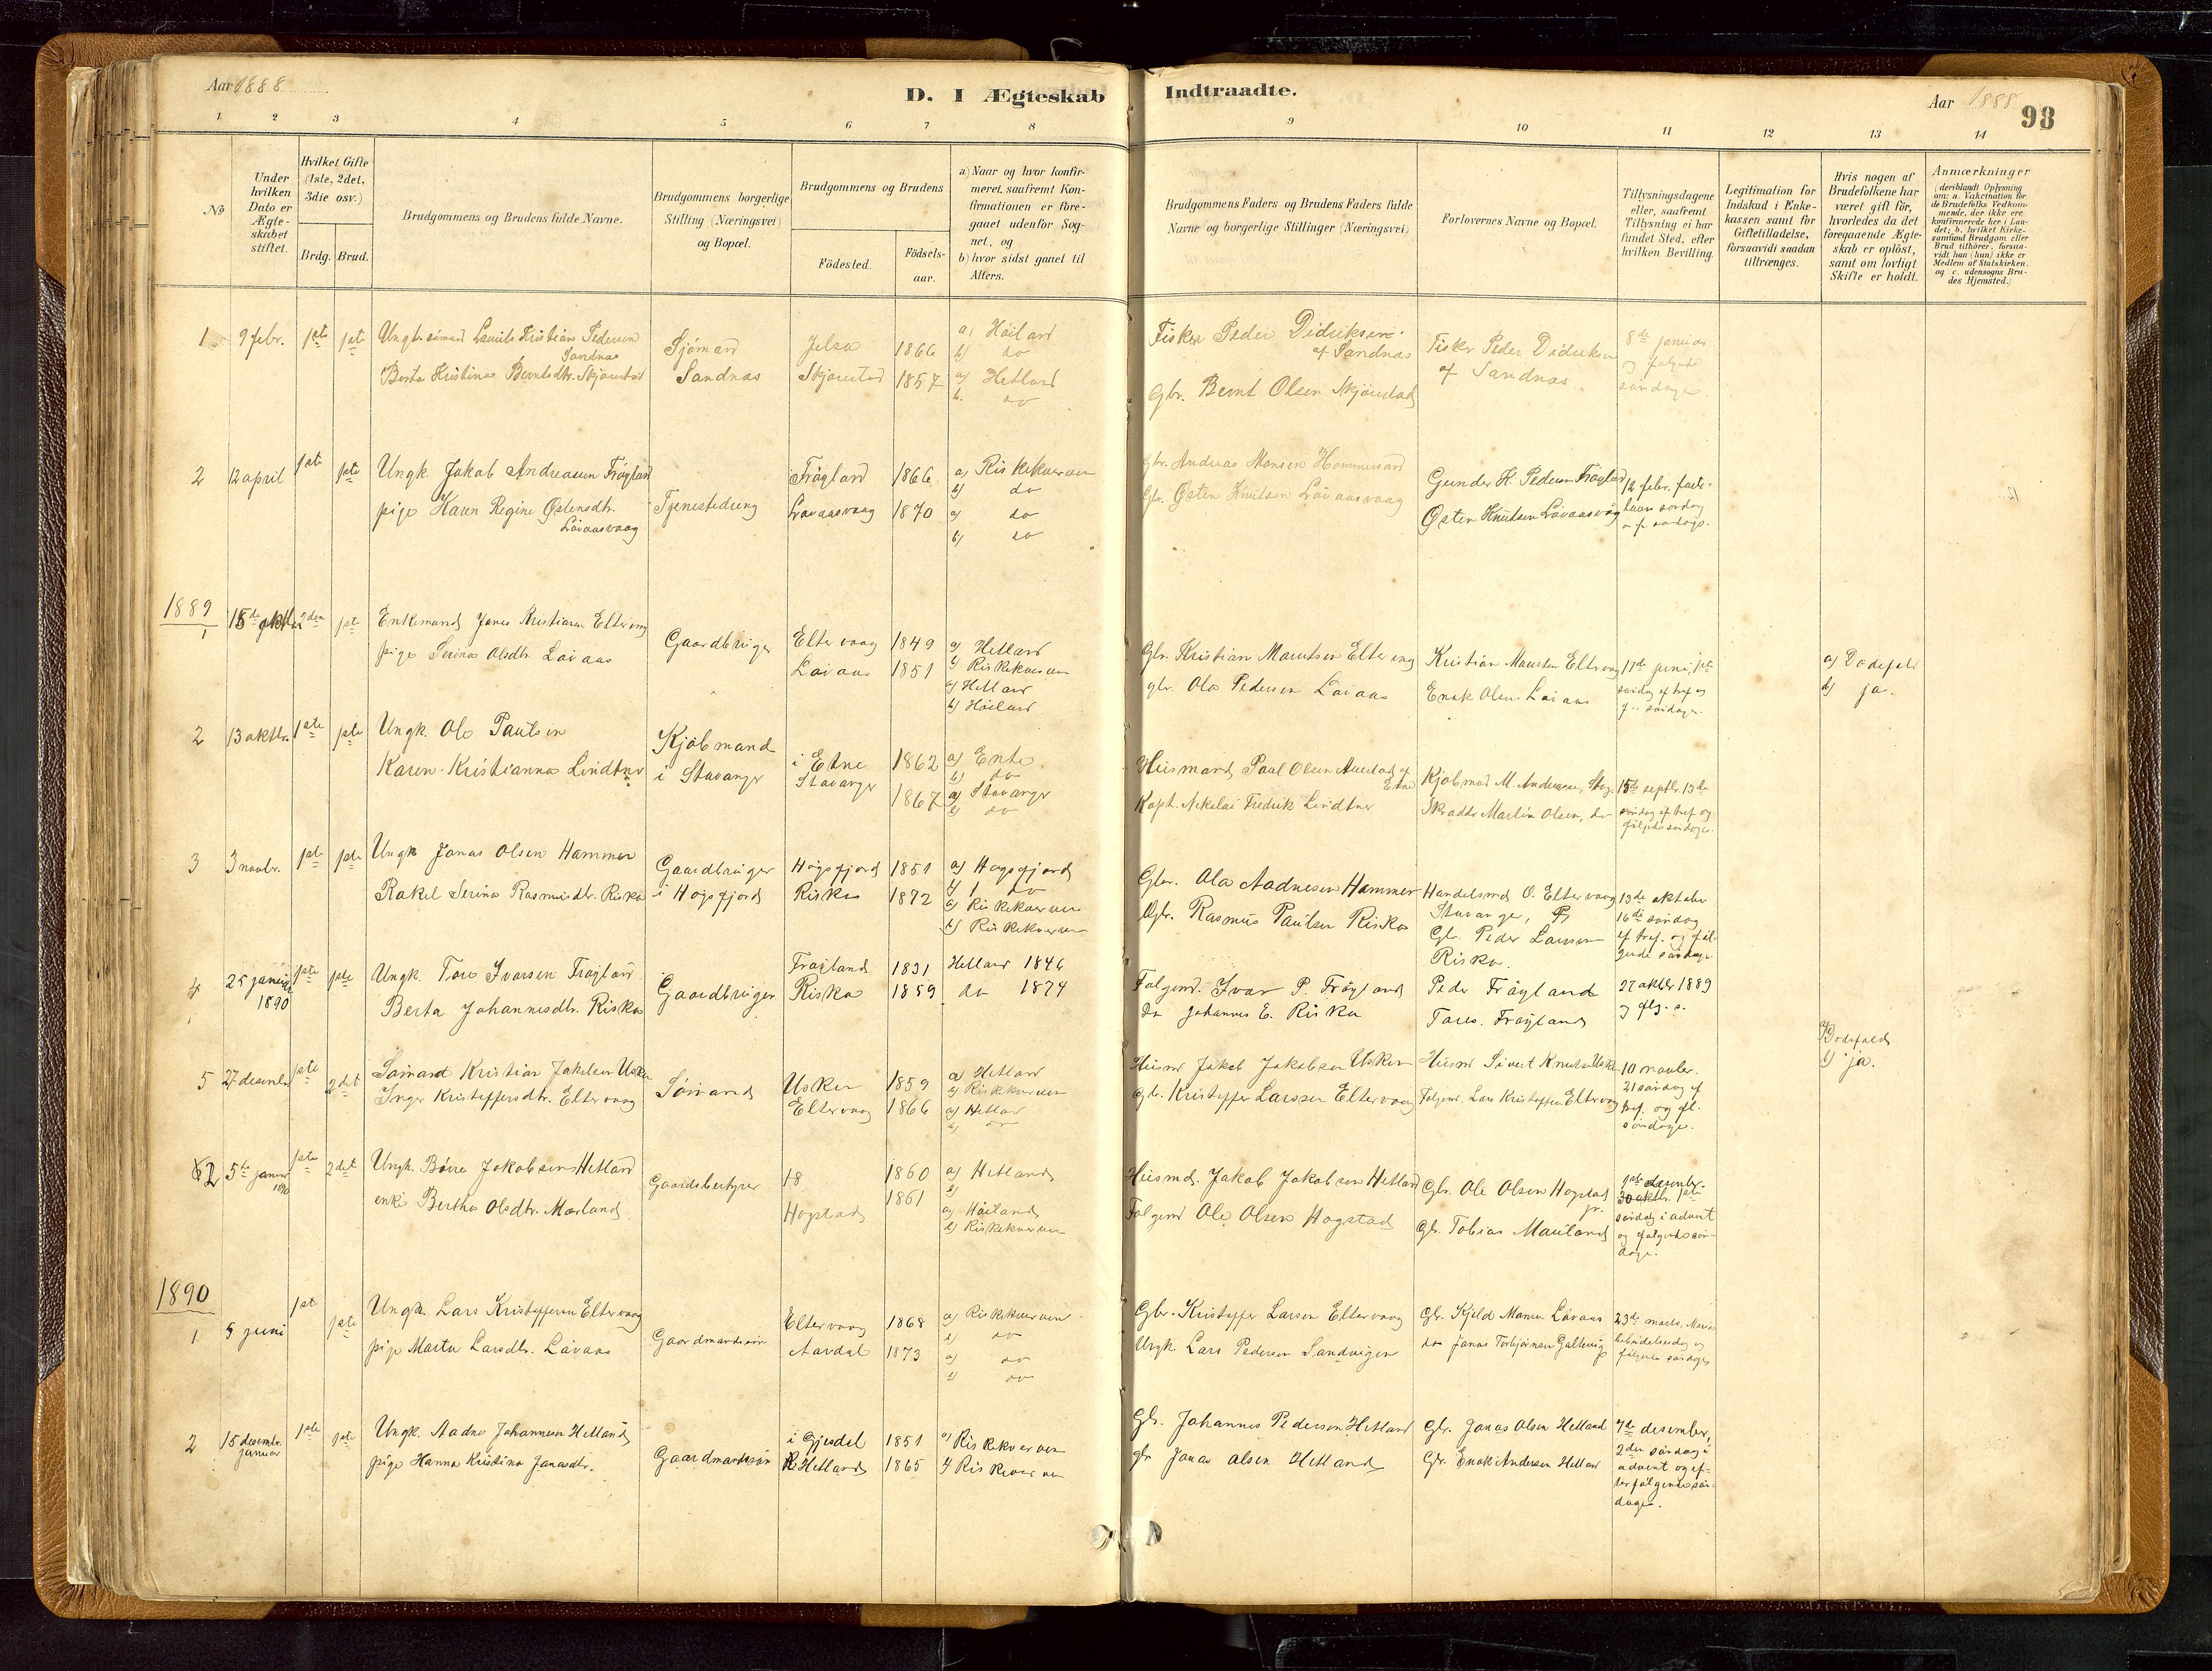 Aar 1888
D. I Ægteskab Indtraadte.
Aar 1888
98
1 2 3 4 5 6 7 8 9 10 11 12 13 14
No
Under hvilken Dato er Ægteskabet stiftet.
Hvilket Gifte (1ste, 2det, 3die osv.)
Brdg. Brud.
Brudgommens og Brudens fulde Navne.
Brudgommens borgerlige Stilling (Næringsvei) og Bopæl.
Brudgommens og Brudens
Födested.
Födsels-aar.
a) Naar og hvor konfir-
meret, saafremt Kon-
firmationen er fore-
gaaet udenfor Sog-
net, og
b) hvor sidst gaaet til
Alters.
Brudgommens Faders og Brudens Faders fulde
Navne og borgerlige Stillinger (Næringsvei)
Forlovernes Navne og Bopæl.
Tillysningsdagene
eller, saafremt
Tillysning ei har
fundet Sted, efter
hvilken Bevilling.
Legitimation for
Indskud i Enke-
kassen samt for
Giftetilladelse,
forsaavidt saadan
tiltrænges.
Hvis nogen af
Brudefolkene har
været gift för,
hvorledes da det
foregaaende Ægte-
skab er oplöst,
samt om lovligt
Skifte er holdt.
Anmærkninger
(deriblandt Oplysning
om: a. Vakcination for
de Brudefolks Vedkom-
mende, der ikke ere
konfirmerede her i Lan-
det; b. hvilket Kirke-
samfund Brudgom eller
Brud tilhörer, forsaa-
vidt han (hun) ikke er
Medlem af Statskirken,
og c. udensogns Bru-
des Hjemsted.)
1 9 febr. 1ste 1ste Ungk. sömand Laurits Kristian Pedersen Sandnas
Berta Kristina Berntsdtr. Skjærestad
Sjömand Sandnas
Jelsa 1866 a) Höiland b) do
Skjærestad 1857 a) Hetland b. do
Fisker Peder Didriksen af Sandnas
Gbr. Bernt Olsen Skjærestad
Fisker Peder Didriksen af Sandnas
8de januar og følgende söndage.
2 12 april 1ste 1ste Ungk. Jakob Andreasen Fröyland
pige Karen Regine Østensdtr. Löiaasvaag
Tjenestedreng
Fröyland 1866 a) Riskekvernen b) do
Løvaasvaag 1870 a) do b) do
Gbr. Andreas Monsen Hommersand
Gbr. Østen Knutsen Löiaasvaag
Gunder K. Pedersen Fröyland
Østen Knutsen Lövaasvåg
12 febr. faste-
lavns söndag
1889
1 15de oktbr. 2den 1ste Enkemand Jones Kristiansen Eltervaag
pige Serina Olsdtr. Loiaas
Gaardbruger
Eltervaag 1849 a) Hetland b) Riskekvernen
Loiaas 1851 a) Hetland b) Höiland
Gbr. Kristian Mauritsen Eltervaag
gbr. Ola Pedersen Loiaas
Kristian Mauritsen Eltervaag
Enok Olsen Loiaas
17de juni, 1ste
söndag ef tref og
f.. söndage.
a) Dödsfald
b) ja.
2 13 oktbr. 1ste 1ste Ungk. Ole Paulsen
Karen Kristianna Lindtner
Kjöbmand i Stavanger
i Etne 1862 a) Etne b) do
Stavanger 1867 a) Stavanger b) do
Husmand Paul Olsen Austad af Etne
Kapt. Nikolai Fredrik Lindtner
Kjöbmad M. Andreasen, Stvg.
Skrædder Martin Olsen, do
15de septbr. 13de
söndag ef tref og
følgende söndage.
3 3 novbr. 1ste 1ste Ungk. Jonas Olsen Hammer
Rakel Serina Rasmusdtr. Riska
Gaardbruger i Høgsfjord
Høgsfjord 1851 a) Høgsfjord b) do
Riska 1872 a) Riskekvernen b) Riskekvernen
Gbr. Ola Aadnesen Hammer
Gbr. Rasmus Paulsen Riska
Handelsmd. O. Eltervaag
Stavanger,
Gbr. Peder Larsen
Riska.
13de oktober
16de söndag
ef tref. og föl-
gende söndage.
4 25 januar 1890 1ste 1ste Ungk. Tore Ivarsen Fröyland
Berta Johannesdtr. Riska
Gaardbruger
Fröyland 1831 Hetland 1846
Riska 1859 do 1874
Folgemd. Ivar P. Fröyland
do Johannes E. Riska
Peder Fröyland
Tores. Fröyland
27 oktbr 1889
og flg. s.
5 27 desember 1ste 2det Sömand Kristian Jakobsen Usken
Inger Kristoffersdtr. Eltervaag
Sömand
Usken 1859 a) Hetland b) Riskekvernen
Eltervaag 1866 a) Hetland b) do
Husmd Jakob Jakobsen Usken
Gbr. Kristoffer Larsen Eltervaag
Husmd Sivert Knutsen Usken
Folgemd. Lars Kristoffersen Eltervaag
10 novbr.
21 söndag ef
tref. og föl.
söndage.
a) Dödsfald
b) ja.
2 5te januar 1890 1ste 2det Ungk. Børre Jakobsen Hetland
enke Bertha Olsdtr. Mæland
Gaardsbestyrer
18 1860 a) Hetland b)
Hogstad 1861 a) Höiland b) Riskekvernen
Husmd. Jakob Jakobsen Hetland
Folgemd Ole Olsen Hogstad
Gbr. Ole Olsen Hogstad jr.
Gbr. Tobias Mauland
1ste desember.
30 oktbr. 1ste
söndag i advent
og følgende sön-
dage.
1890
1 5 juni 1ste 1ste Ungk. Lars Kristoffersen Eltervaag
pige Marta Larsdtr. Lövaas
Gaardmandssön
Eltervaag 1868 a) Riskekvernen b) do
Aardal 1873 a) do b) do
Gbr. Kristoffer Larsen Eltervaag
Ungk. Lars Pedersen Sandvigen
Gbr. Kjeld Monsen Lövaas
do Jonas Torbjörnsen Galtevig
23de marts, Maria
bebudelsesdag og
følgende söndage
2 15 desembr. januar 1ste 1ste Ungk. Aadne Johannesen Hetland
pige Hanna Kristina Jonasdtr.
Gaardmandssön
i Gjesdal 1851 a) Riskekvernen
Hetland 1865 b) Riskekvernen
Gbr. Johannes Pedersen Hetland
gbr Jonas Olsen Hetland
Gbr. Jonas Olsen Hetland
Gbr. Enok Andersen Hetland
7de desember,
2den söndag i
advent og ef-
terfølgende sön-
dage.